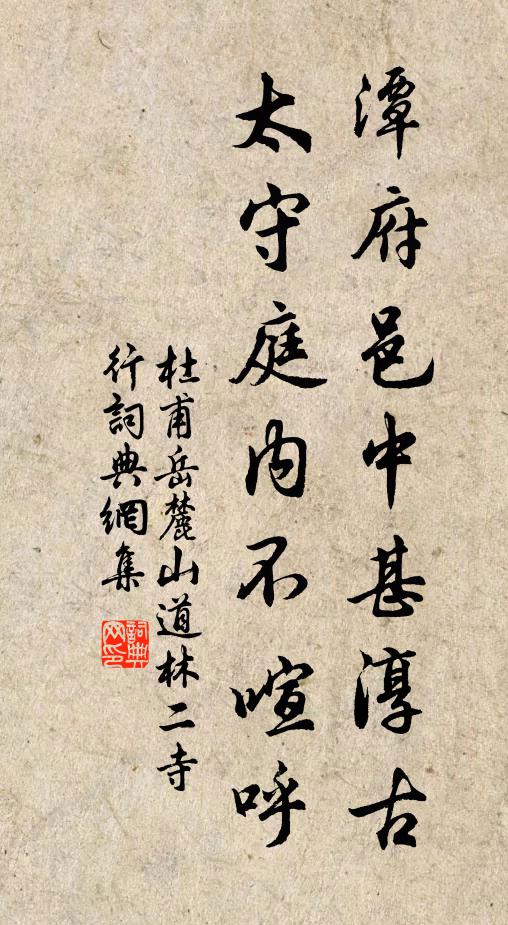 潭府邑中甚淳古
太守庭内不喧呼
杜甫岳麓山道林二寺
行詞典網集
詞典
网印